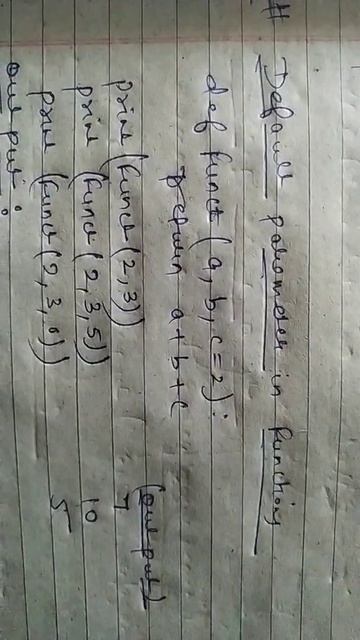 # Default parameter in function
def funct (a, b, c=2):
return a+b+c
(output)
print (funct (2,3)) 7
print (funct (2,3,5)) 10
print (funct (2,3,0)) 5
output: